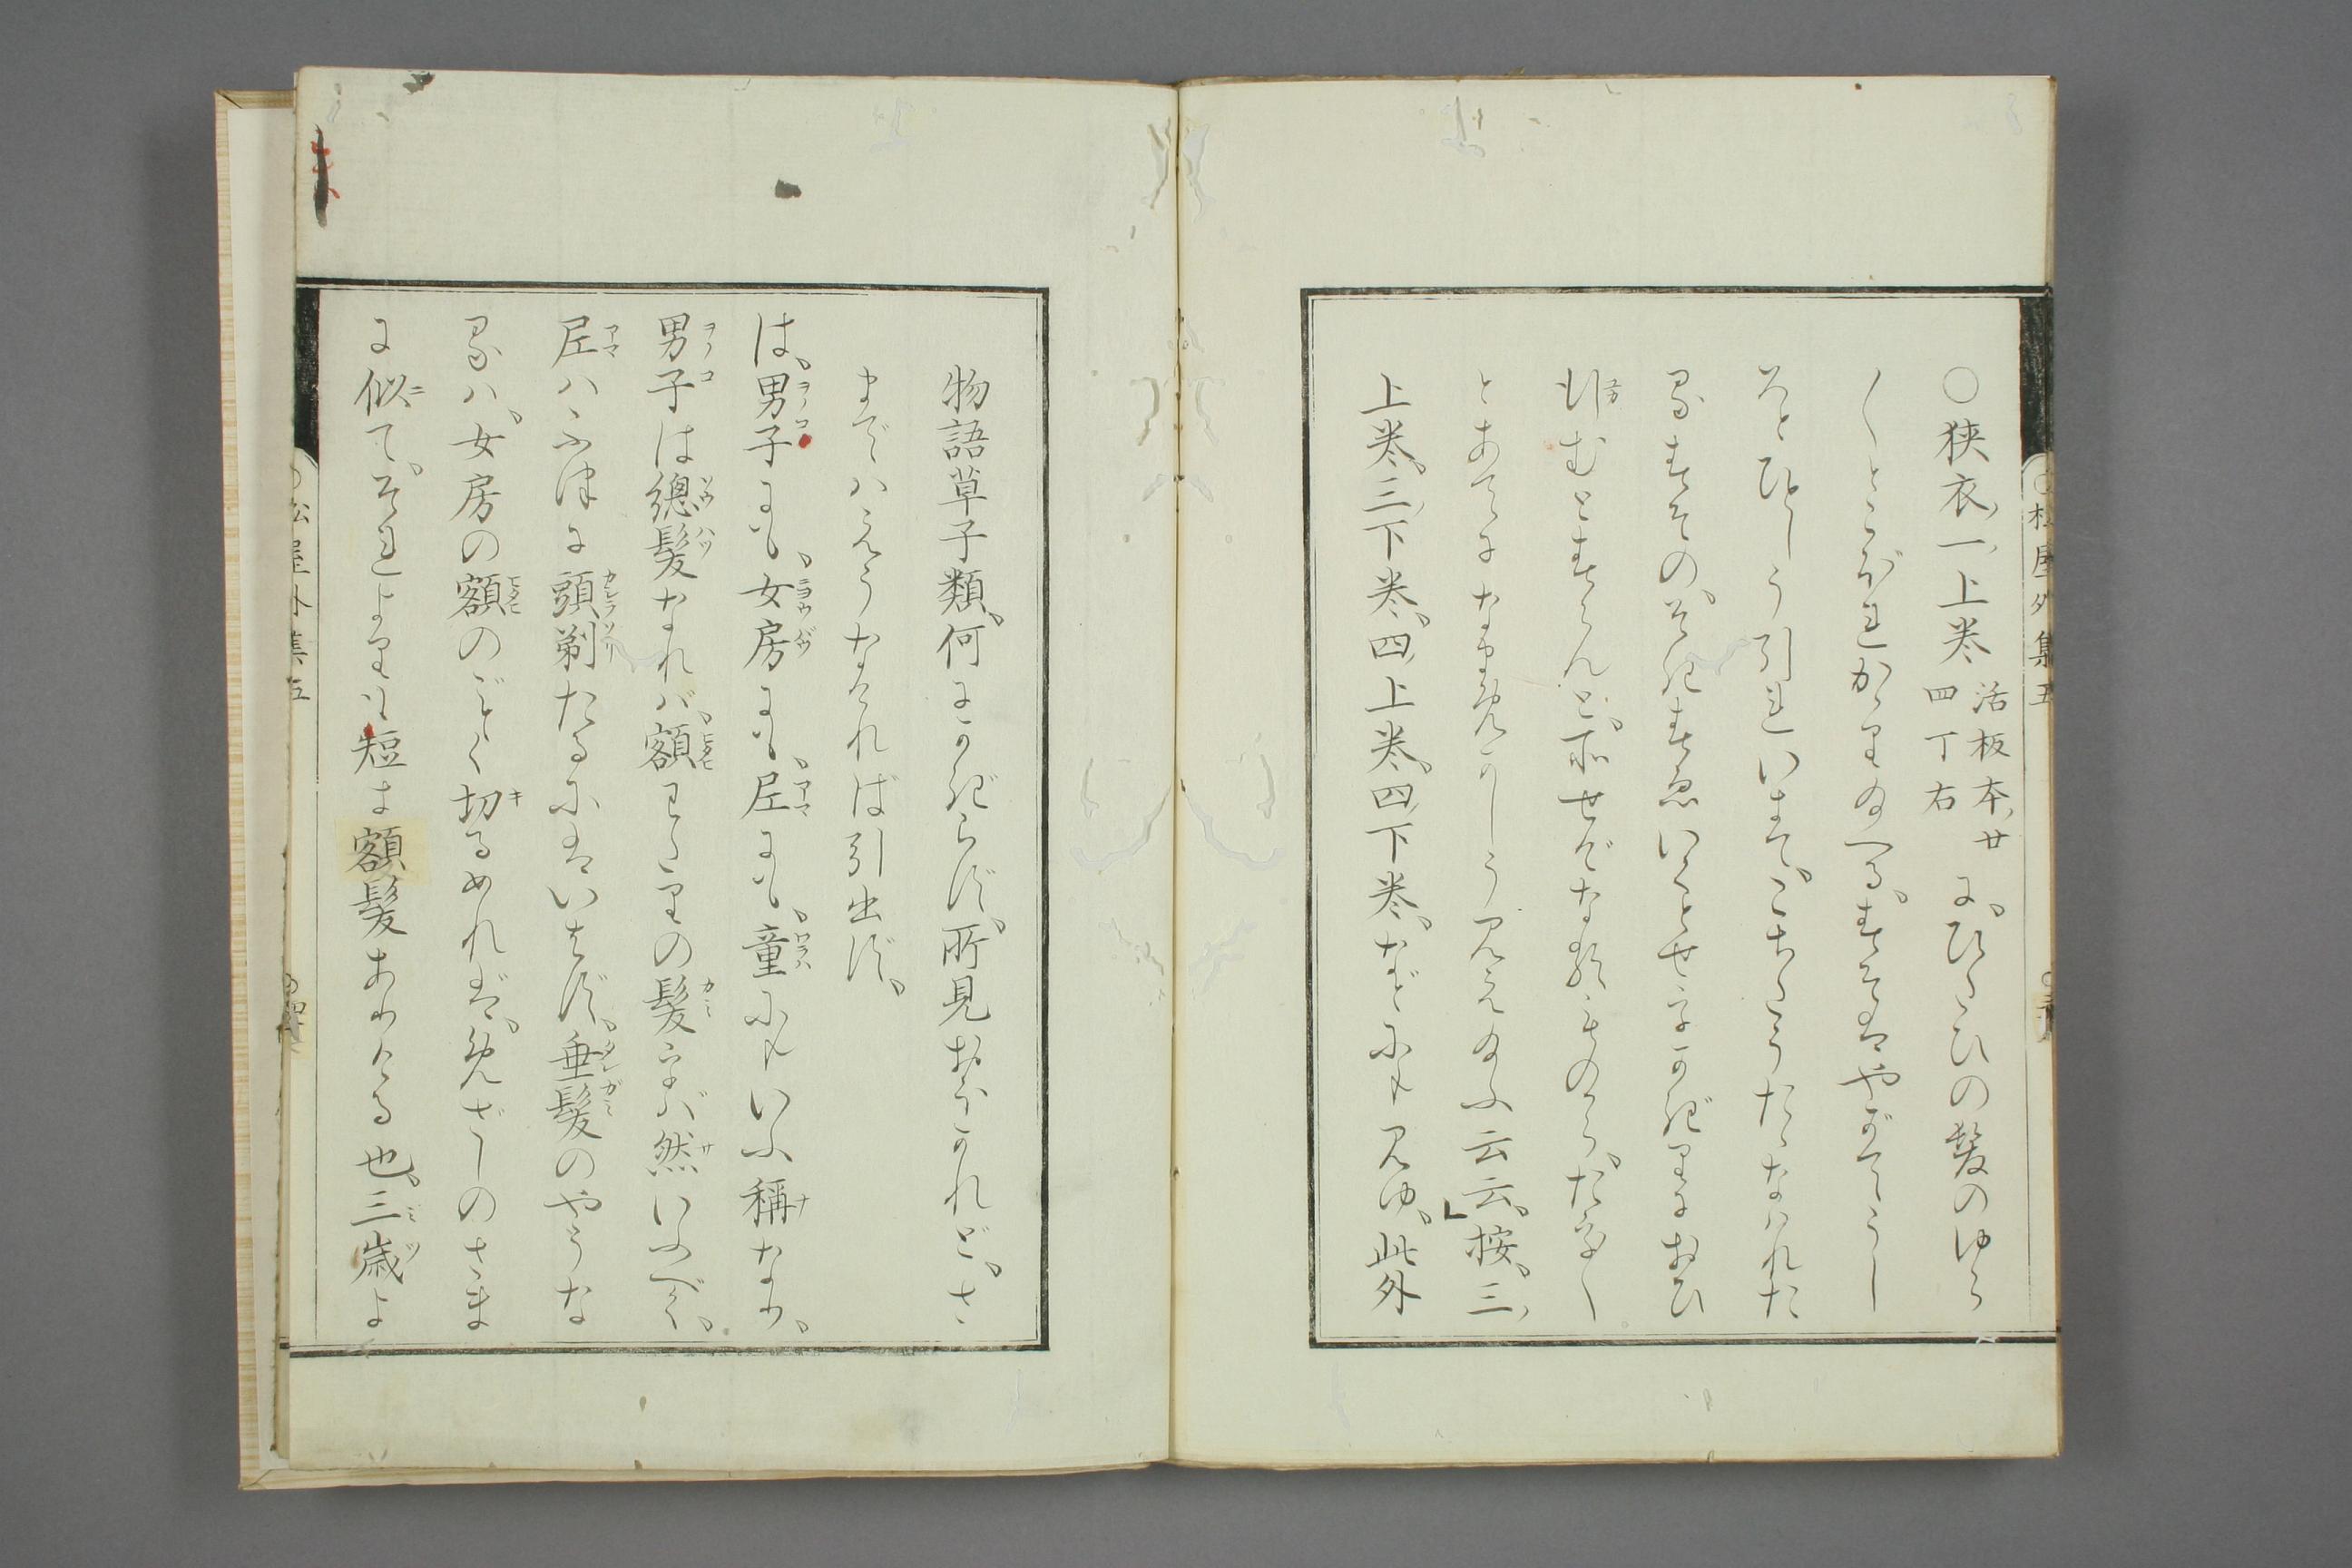 ○狭衣、一、上巻、活板本、廿四丁右に、ひたひの髪のゆら
〳〵とこぼれかゝり給へる、すそはやがてうし
ろとひとしう引れいきて、こちたうたゝなはれた
るすその、そぎすゑいくとせをかぎりにおひ
ゆかむとすらんと、所せげなるものから、たをや
とあてになまめかしう見え給ふ云云、」按、三、
上巻、三、下巻、四、上巻、四、下巻、などにも見ゆ、此外
物語草子類、何にかぎらず、所見おほかれど、さ
までハえうなければ引出ず、
は、男子にも、女房にも、尼にも、童にもいふ稱なり、
男子は總髪なれバ、額わたりの髪をバ然いふべく、
尼ハふつに頭剃たるにはいはず、垂髪のやうな
るハ、女房の額のごとく切るめれば、めざしのさま
に似て、それよりも短き額髪ありける也、三歳よ
松屋外集五